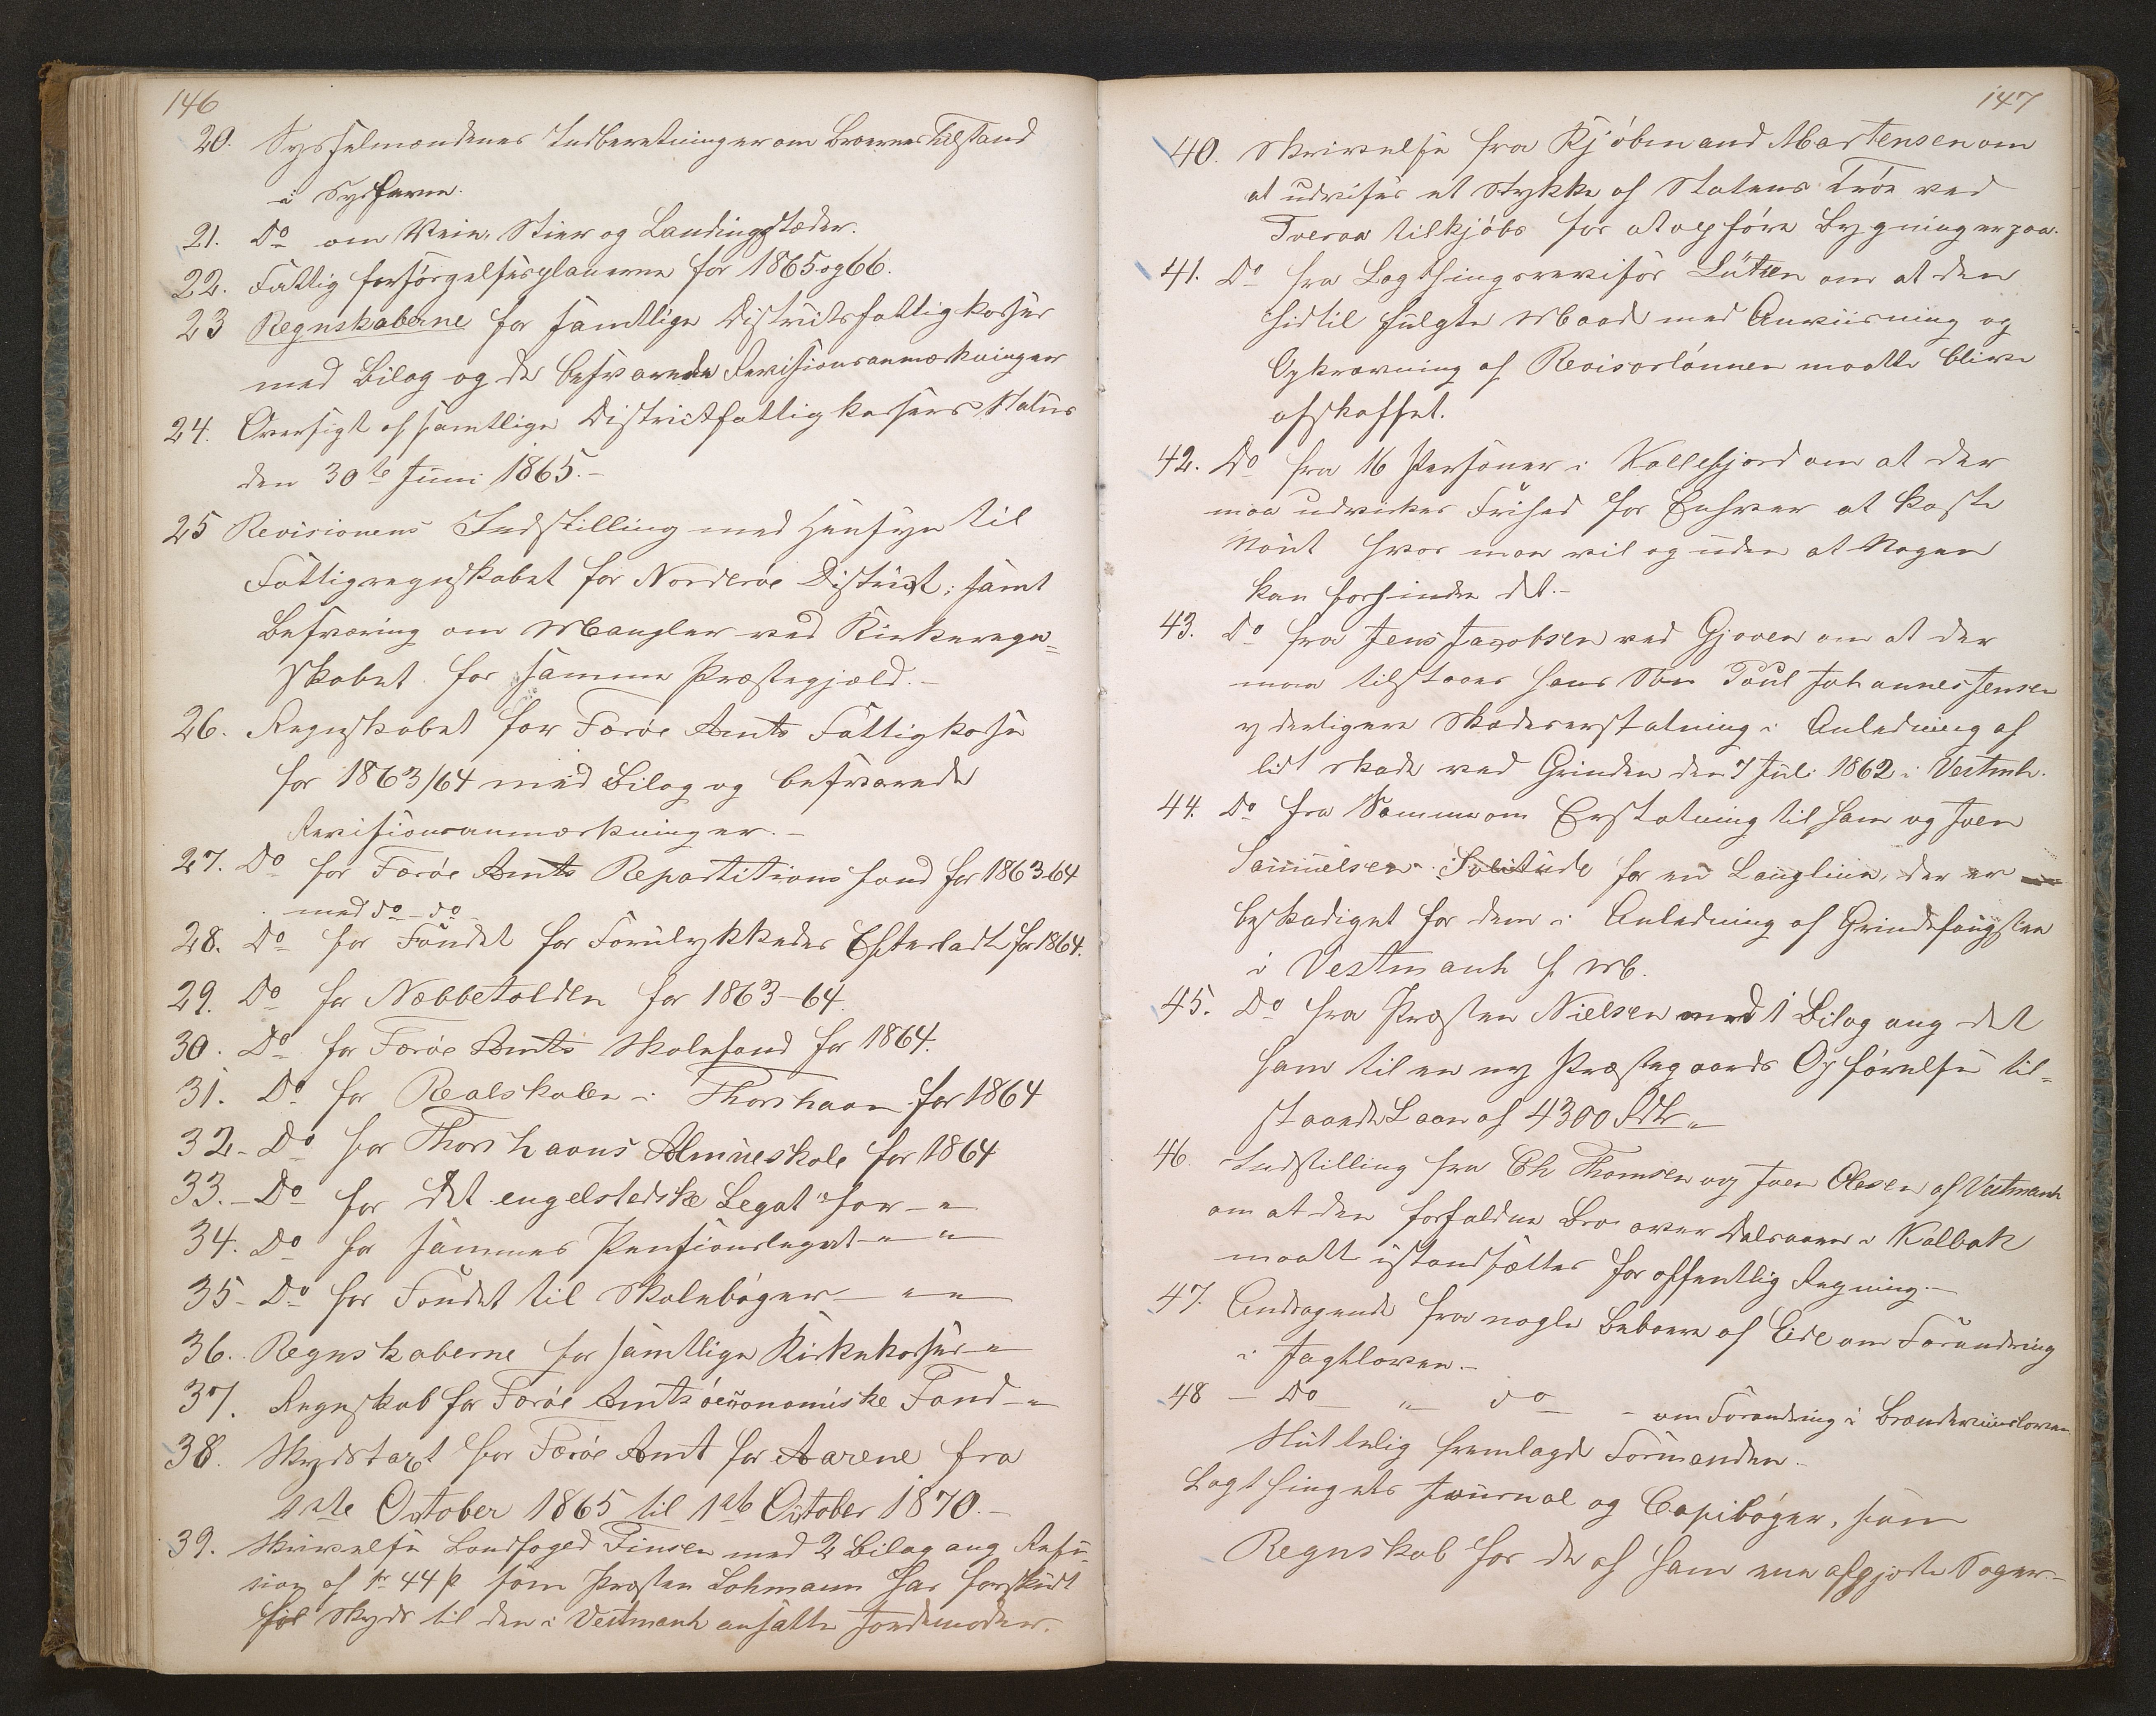 146
20. Sysselmændenes Indberetninger om Broernes Tilstand
i Syslerne.
21. Do om Veie, Stier og Landingsstæder.
22. Fattigforsørgelsesplanerne for 1865 og 66.
23 Regnskaberne for samtlige Districtsfattigkasser
med Bilag og de besvarede Revisionsanmærkninger
24. Oversigt af samtlige Districtsfattigkassers Status
den 30te Juni 1865.-
25 Revisionens Indstilling med Hensyn til
Fattigregnskabet for Norderøe District; samt
Besværing om Mangler ved Kirkeregn=
skabet for samme Præstegjæld.-
26. Regnskabet for Færøe Amts Fattigkasse
for 1863/64 med Bilag og besvarede
Revisionsanmærkninger.-
27. Do for Færøe Amts Repartitionsfond for 1863-64
med do - do
28. Do for Fondet for Forulykkedes Efterladte for 1864.
29. Do for Næbbetolden for 1863-64.
30. Do for Færøe Amts Skolefond for 1864.
31. Do for Realskolen i Thorshavn for 1864
32- Do for Thorshavns Almueskole for 1864
33.- Do for det engelstedske Legat for - "
34. Do for sammes Pensionslegat - " "
35- Do for Fondet til Skolebøger - " "
36. Regnskaberne for samtlige Kirkekasser - "
37. Regnskab for Færøe Amts øconomiske Fond - "
38. Skydstaxt for Færøe Amt for Aarene fra
1ste October 1865 til 1ste October 1870.-
39. Skrivelse Landfoged Finsen med 2 Bilag ang Refu-
sion af 44 ß som Præsten Lohmann har forskudt
for Skyds til den i Vestmanh ansatte Jordemoder.
147
40. Skrivelse fra Kjøbmand Mortensen om
at udvises et Stykke af Statens Trøe ved
Tveraa tilkjøbs for at opføre Bygninger paa.
41. Do fra Lagthingsrevisor Lützen om at den
hidtil fulgte Maade med Anviisning og
Opkrævning af Revisorlønnen maatte blive
afskaffet.
42. Do fra 16 Personer i Kollefjord om at der
maa udvirkes Frihed for Enhver at kaste
Nout hvor man vil og uden at Nogen
kan forhindre det.-
43. Do fra Jens Jacobsen ved Gjoven om at der
maa tilstaaes hans Søn Poul Johannes Jensen
yderligere Skadeserstatning i Anledning af
lidt Skade ved Grinden den 7 Juli 1862 i Vestmh.
44. Do fra Samme om Erstatning til ham og Joen
Samuelsen i Solitude for en Langline, der er
beskadiget for dem i Anledning af Grindefangsten
i Vestmanh f M.
45. Do fra Præsten Nielsen med 1 Bilag ang det
ham til en ny Præstegaards Opførelse til=
staaede Laan af 4300 Rdl. "
46. Indstilling fra Ch Thomsen og Joen Olesen af Vestmanh
om at den forfaldne Bro over Dalsaaen i Kalbak
maatte istandsættes for offentlig Regning.-
47. Andragende fra nogle Beboere af Eide om Forandring
i Jagtloven.-
48 - Do " do - om Forandring i Brændeviinsloven.
Sluttelig fremlagde Formanden.
Lagthingets Journal og Copibøger, som
Regnskab for de af ham ene afgjorte Sager.-